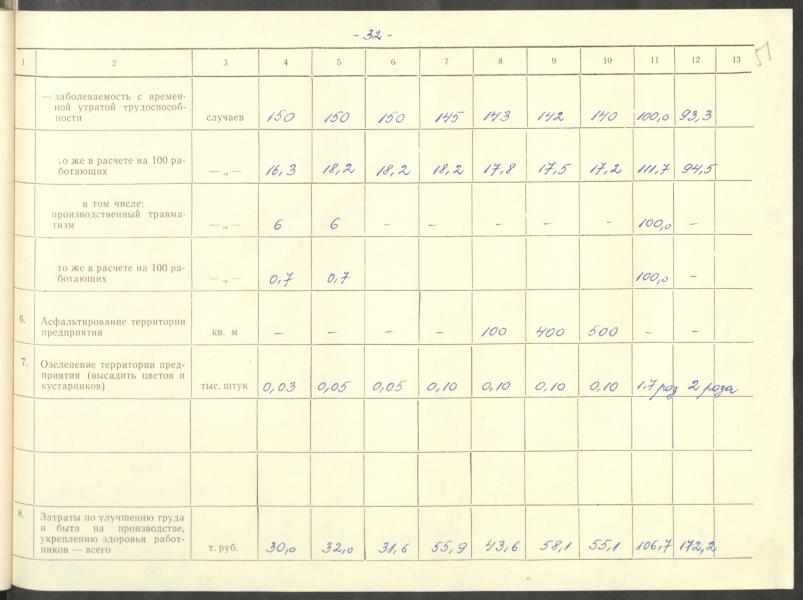 - 32 -
51
1 2 3 4 5 6 7 8 9 10 11 12 13
— заболеваемость с времен-
ной утратой трудоспособ-
ности случаев 150 150 150 145 143 142 140 100,0 93,3
то же в расчете на 100 ра-
ботающих — „ — 16,3 18,2 18,2 18,2 17,8 17,5 17,2 111,7 94,5
в том числе:
производственный травма-
тизм — „ — 6 6 - - - - - 100,0 -
то же в расчете на 100 ра-
ботающих — „ — 0,7 0,7 100,0 -
6. Асфальтирование территории
предприятия кв. м - - - - 100 400 500 - -
7. Озеленение территории пред-
приятия (высадить цветов и
кустарников) тыс. штук 0,03 0,05 0,05 0,10 0,10 0,10 0,10 1,7 раз 2 раза
8. Затраты по улучшению труда
и быта на производстве,
укреплению здоровья работ-
ников — всего т. руб. 30,0 32,0 31,6 55,9 43,6 58,1 55,1 106,7 172,2